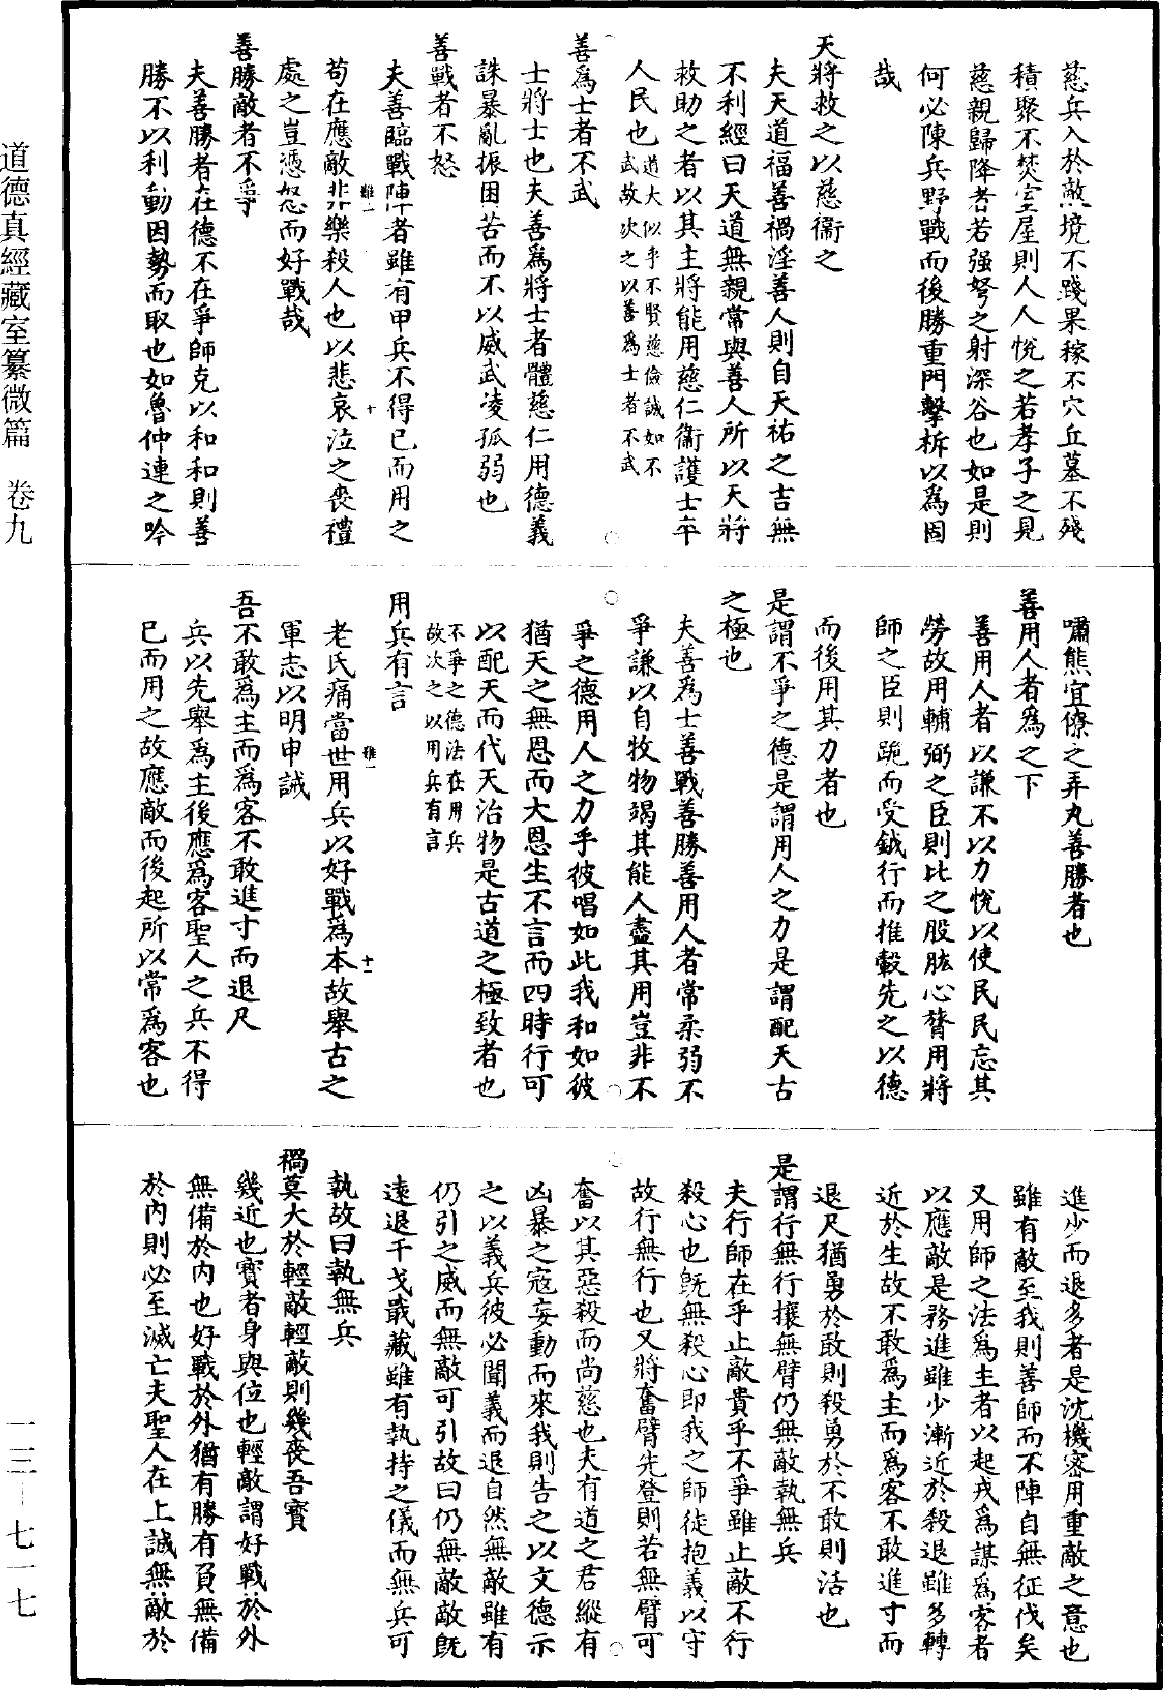 慈兵入於敵境不踐果稼不穴丘墓不殘
積聚不焚室屋則人人悅之若孝子之見
慈親歸降者若强弩之射深谷也如是則
何必陳兵野戰而後勝重門擊柝以為固
哉
天將救之以慈衞之
夫天道福善禍淫善人則自天祐之吉無
不利經曰天道無親常與善人所以天將
救助之者以其主將能用慈仁衞護士卒
人民也道大似乎不賢慈儉誠如不武故次之以善為士者不武
善為士者不武
士將士也夫善為將士者體慈仁用德義
誅暴亂振困苦而不以威武凌孤弱也
善戰者不怒
夫善臨戰陣者雖有甲兵不得已而用之
苟在應敵非樂殺人也以悲哀泣之喪禮
處之豈憑怒而好戰哉
善勝敵者不爭
夫善勝者在德不在爭師克以和和則善
勝不以利動因勢而取也如魯仲連之吟
嘯熊宜僚之弄丸善勝者也
善用人者為之下
善用人者以謙不以力悅以使民民忘其
勞故用輔弼之臣則比之股肱心膂用將
師之臣則跪而受鉞行而推轂先之以德
而後用其力者也
是謂不爭之德是謂用人之力是謂配天古
之極也
夫善為士善戰善勝善用人者常柔弱不
爭謙以自牧物竭其能人盡其用豈非不
爭之德用人之力乎彼唱如此我和如彼
猶天之無恩而大恩生不言而四時行可
以配天而代天治物是古道之極致者也
不爭之德法在用兵故次之以用兵有言
用兵有言
老氏痛當世用兵以好戰為本故舉古之
軍志以明申誡
吾不敢為主而為客不敢進寸而退尺
兵以先舉為主後應為客聖人之兵不得
已而用之故應敵而後起所以常為客也
進少而退多者是沈機密用重敵之意也
雖有敵至我則善師而不陣自無征伐矣
又用師之法為主者以起戎為謀為客者
以應敵是務進雖少漸近於殺退雖多轉
近於生故不敢為主而為客不敢進寸而
退尺猶勇於敢則殺勇於不敢則活也
是謂行無行攘無臂仍無敵執無兵
夫行師在乎止敵貴乎不爭雖止敵不行
殺心也旣無殺心即我之師徒抱義以守
故行無行也又將奮臂先登則若無臂可
奮以其惡殺而尚慈也夫有道之君縱有
凶暴之寇妄動而來我則告之以文德示
之以義兵彼必聞義而退自然無敵雖有
仍引之威而無敵可引故曰仍無敵敵旣
遠退干戈戢藏雖有執持之儀而無兵可
執故曰執無兵
禍莫大於輕敵輕敵則幾喪吾寶
幾近也寶者身與位也輕敵謂好戰於外
無備於內也好戰於外猶有勝有負無備
於內則必至滅亡夫聖人在上誠無敵於
道德真經藏室纂微篇 卷九
一三—七一七